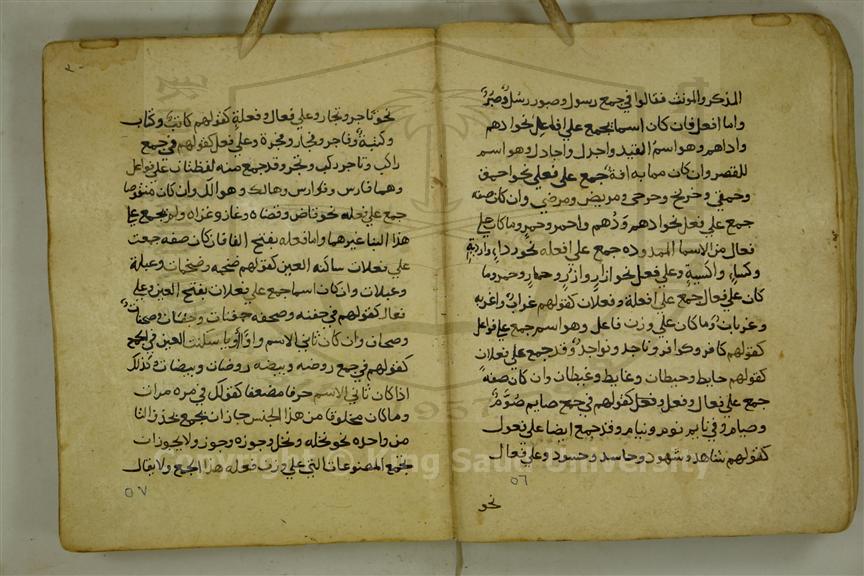 المذكر والمونث فقالوا في جمع رسول وصبور رسُل وصُبُر
واما افعل فان كان اسما جمع على افاعل نحو ادهم
واداهم وهو اسم القيد واجدل واجادل وهو اسم
للصقر وان كان مما به افة جمع على فعلى نحو احمق
وحمقى وجريح وجرحى ومريض ومرضى وان كان صفه
جمع على فعل نحو ادهم ودُهم واحمر وحمر وما كان على
فعال من الاسما الممدوده جمع على افعله نحو رداء واردية
وكساء واكسية وعلى فعل نحو ازار وازر وحمار وحمر وما
كان على فعال جمع على افعلة وفعلان كقولهم غراب واغربه
وغربان وما كان على وزن فاعل وهو اسم جمع على فواعل
كقولهم كافر وكوافر وناجد ونواجد وقد جمع على فعلان
كقولهم حايط وحيطان وغايط وغيطان وان كان صفة
جمع على فعال وفعل وفعل كقولهم في جمع صايم صُوَّم
وصيام وفي نايم نوم ونيام وقد جمع ايضا على فعول
كقولهم شاهد وشهود وحاسد وحسود وعلى فعال
٥٦
نحو
نحو تاجر وتجار وعلى فعال وفعلة كقولهم كاتب وكتاب
وكتبة وفاجر وفجار وفجرة وعلى فعل كقولهم في جمع
راكب وتاجر ركب وتجر وقد جمع منه لفظتان على فواعل
وهما فارس وفوارس وهالك وهوالك وان كان منقوصا
جمع على فعله نحو قاض وقضاه وغاز وغزاه ولم يجمع على
هذا البنا غيرهما واما فعله بفتح الفا فان كان صفه جمعت
على فعلات ساكنه العين كقولهم ضخمه وضخمات وعبلة
وعبلات وان كان اسما جمع على فعلات بفتح العين وعلى
فعال كقولهم في جفنه وصحفه جفنات وجفان وصحفات
وصحاف وان كان ثاني الاسم واوا او يا سكنت العين في الجمع
كقولهم في جمع روضه وبيضه روضات وبيضات وكذلك
اذا كان ثاني الاسم حرفا مضعفا كقولك في مره مرات
وما كان مخلوقا من هذا الجنس جاز ان يجمع بحذف التا
من واحده نحو نخله ونخل وجوزه وجوز ولا يجوز ان
تجمع المصنوعات التي على وزن فعله هذا الجمع ولا يقال
٥٧
Copyright © King Saud University
1957